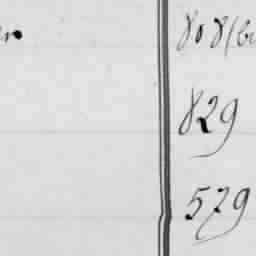 808
829
579